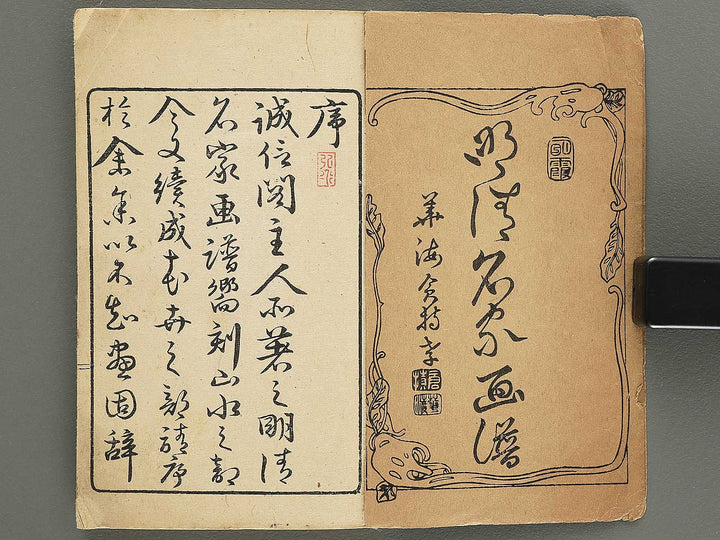 明清名家画譜
序
誠信閣主人所著之明清
名家画譜嚮刻山水之部
今又續成花卉之部請序
於余余以不知畫固辞